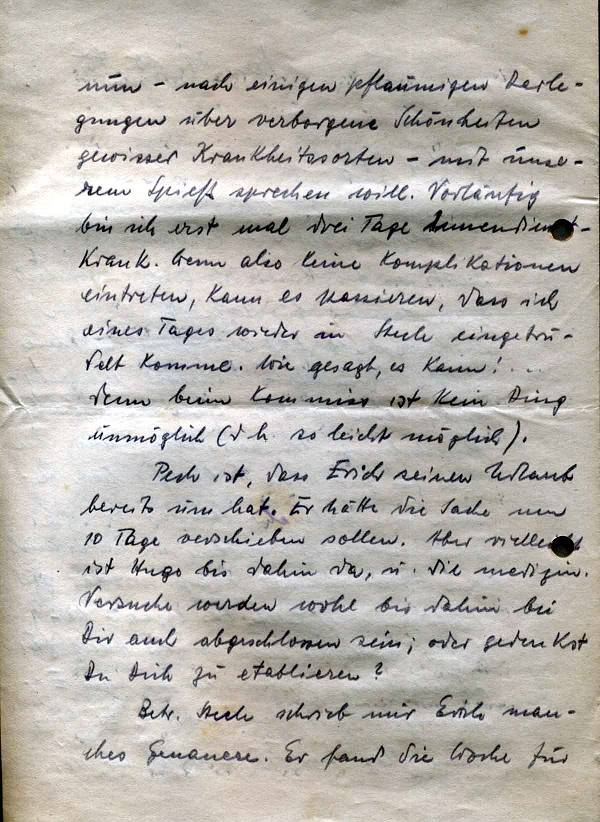 nun – nach einigen pflaumigen Darle-
gungen über verborgene Schönheiten
gewisser Krankheitssorten – mit unse-
rem Spieß sprechen will. Vorläufig
bin ich erst mal drei Tage Innendienst-
Krank. Wenn also keine Komplikationen
eintreten, kann es passieren, dass ich
eines Tages wieder in Steele eingetru-
delt komme. Wie gesagt, es kann! ..
denn beim Kommiss ist kein Ding
unmöglich (d.h. so leicht möglich).
Pech ist, dass Erich seinen Urlaub
bereits um hat. Er hätte die Sache um
10 Tage verschieben sollen. Aber vielleicht
ist Hugo bis dahin da, u. die medizin.
Versuche werden wohl bis dahin bei
Dir auch abgeschlossen sein; oder gedenkst
Du Dich zu etablieren?
Betr. Steele schrieb mir Erich man-
ches Genauere. Er fand die Woche für